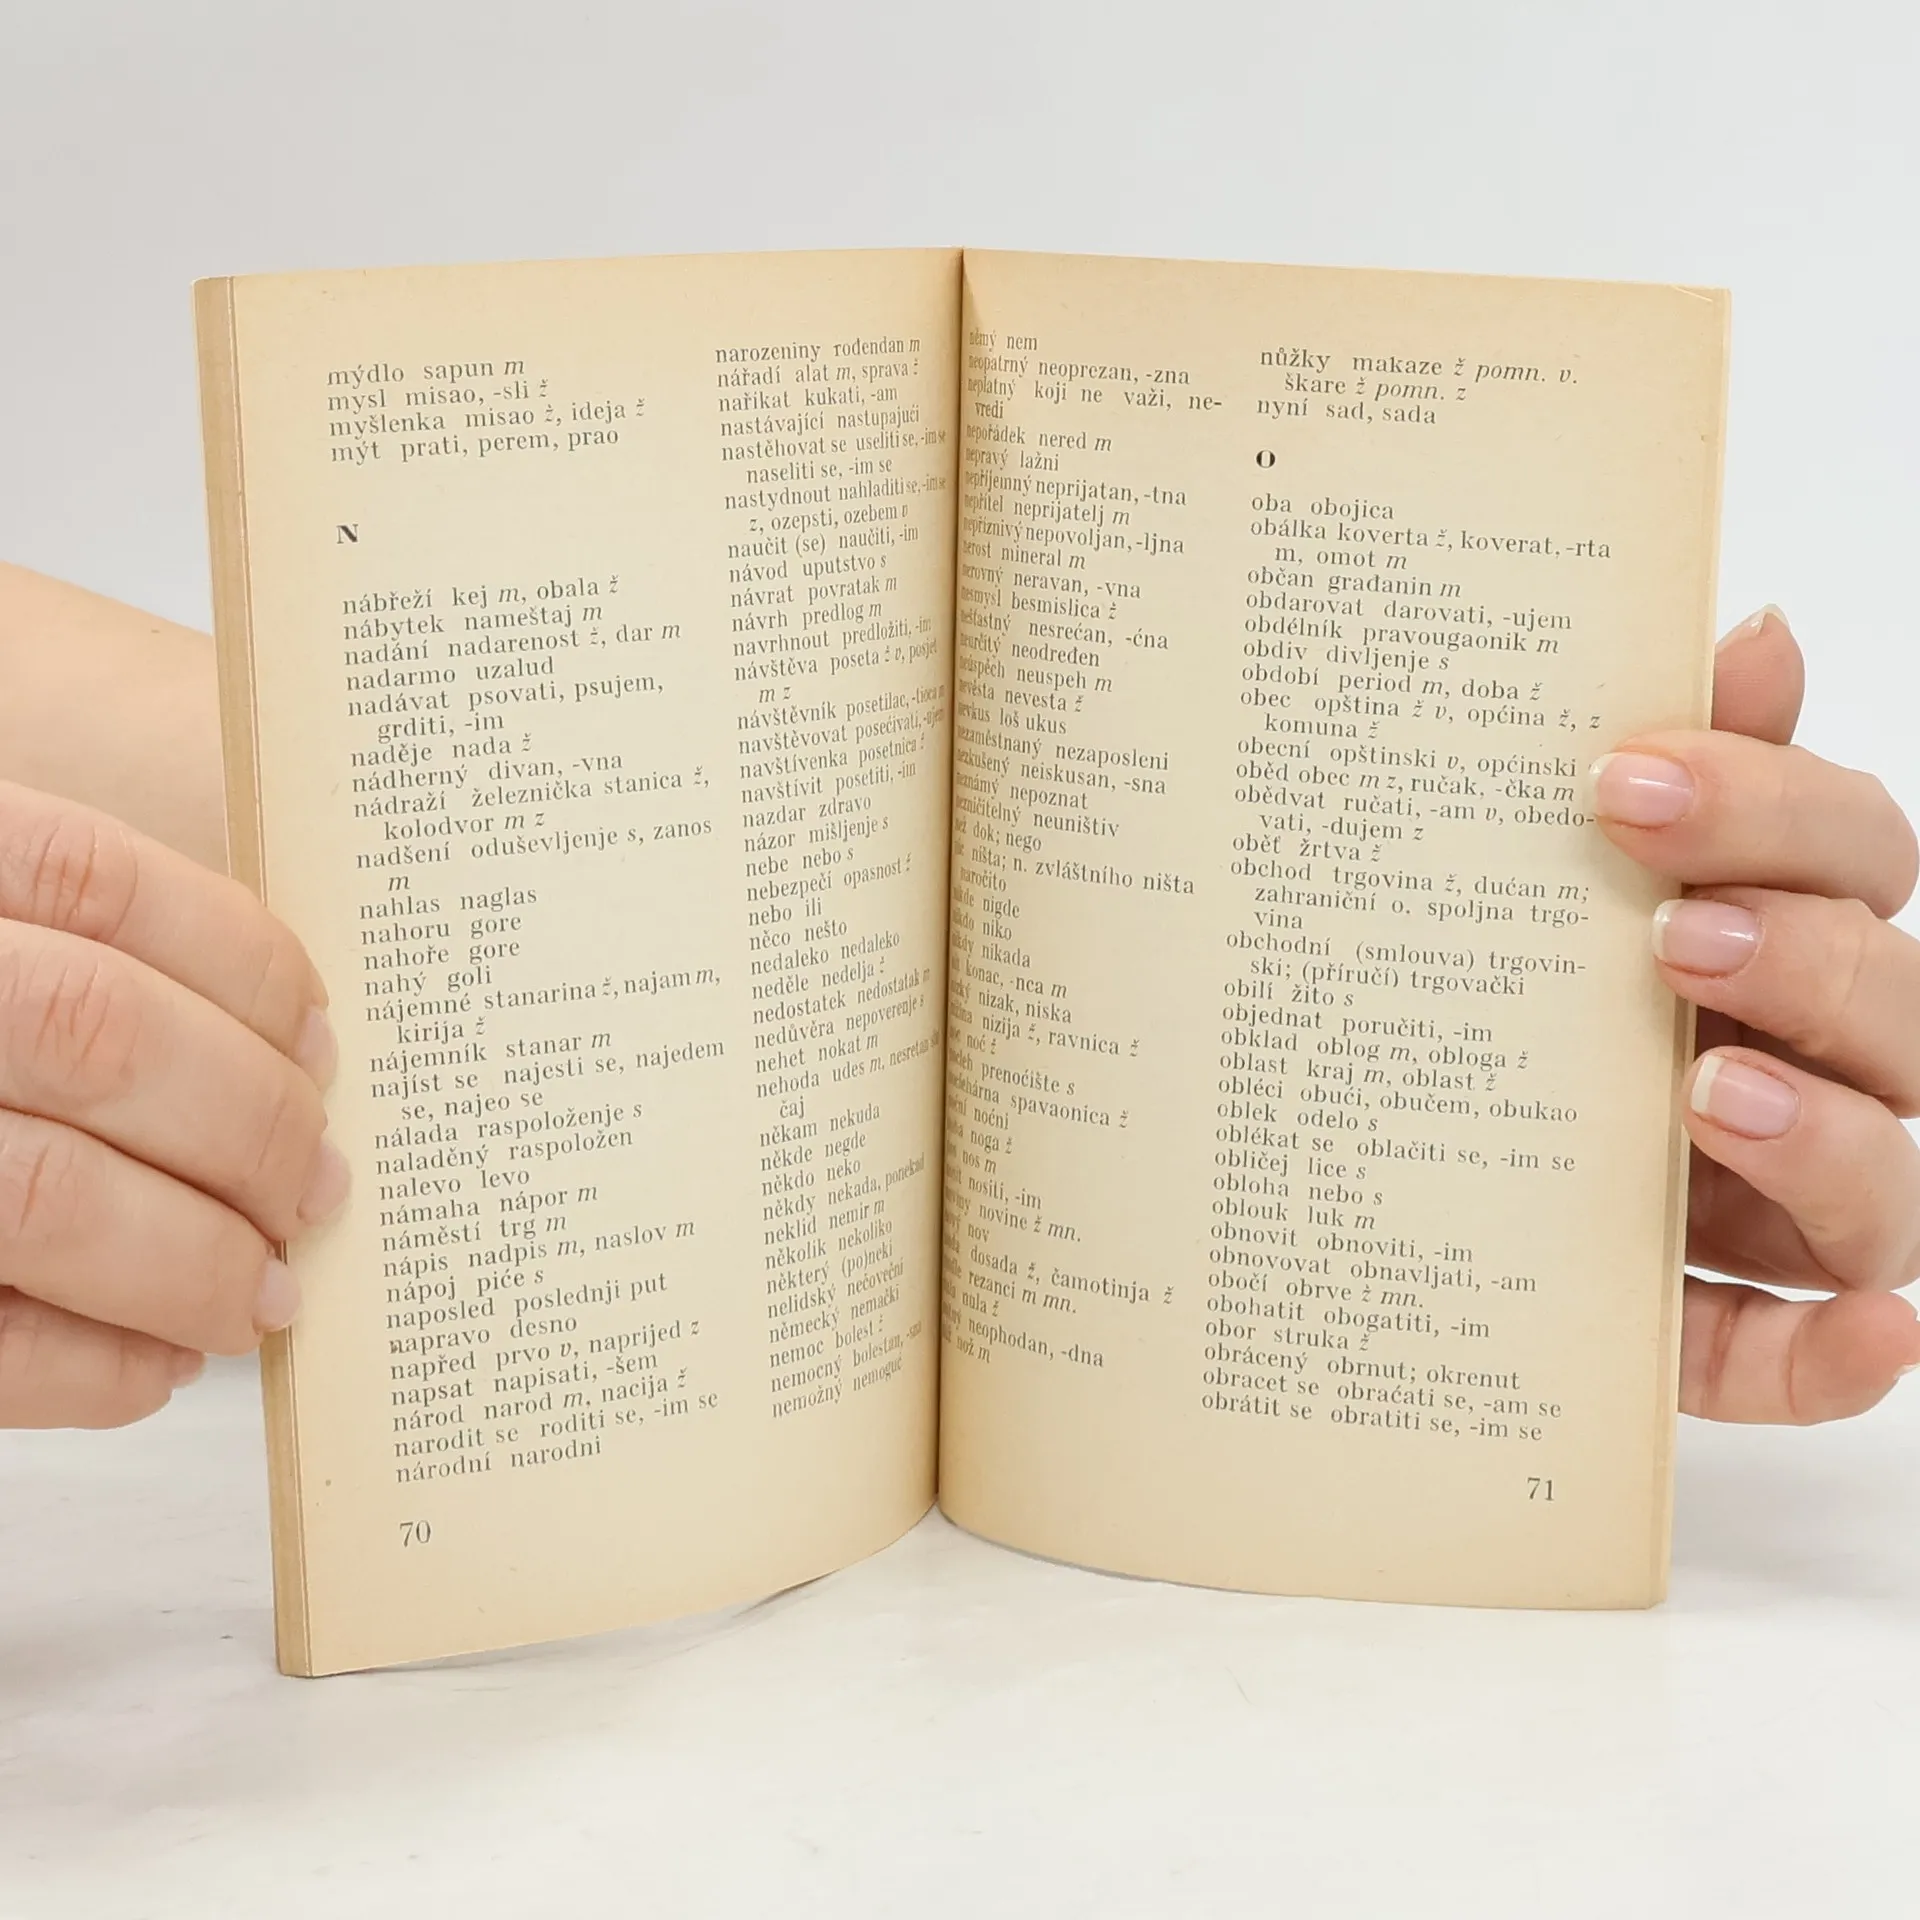 mýdlo sapun m
mysl misao, -sli ž
myšlenka misao ž, ideja ž
mýt prati, perem, prao
N
nábřeží kej m, obala ž
nábytek nameštaj m
nadání nadarenost ž, dar m
nadarmo uzalud
nadávat psovati, psujem,
grditi, -im
naděje nada ž
nádherný divan, -vna
nádraží železnička stanica ž,
kolodvor m z
nadšení oduševljenje s, zanos
m
nahlas naglas
nahoru gore
nahoře gore
nahý goli
nájemné stanarina ž, najam m,
kirija ž
nájemník stanar m
najíst se najesti se, najedem
se, najeo se
nálada raspoloženje s
naladěný raspoložen
nalevo levo
námaha nápor m
náměstí trg m
nápis nadpis m, naslov m
nápoj piće s
naposled poslednji put
napravo desno
napřed prvo v, naprijed z
napsat napisati, -šem
národ narod m, nacija ž
narodit se roditi se, -im se
národní narodni
70
narozeniny rođendan m
nářadí alat m, sprava ž
naříkat kukati, -am
nastávající nastupajući
nastěhovat se useliti se, -im se
naseliti se, -im se
nastydnout nahladiti se, -im se
z, ozepsti, ozebem v
naučit (se) naučiti, -im
návod uputstvo s
návrat povratak m
návrh predlog m
navrhnout predložiti, -im
návštěva poseta ž v, posjet
m z
návštěvník posetilac, -tioca m
navštěvovat posećivati, -ujem
navštívenka posetnica ž
navštívit posetiti, -im
nazdar zdravo
názor mišljenje s
nebe nebo s
nebezpečí opasnost ž
nebo ili
něco nešto
nedaleko nedaleko
neděle nedelja ž
nedostatek nedostatak m
nedůvěra nepoverenje s
nehet nokat m
nehoda udes m, nesretan slu
čaj
někam nekuda
někde negde
někdo neko
někdy nekada, ponekad
neklid nemir m
několik nekoliko
některý (po)neki
nelidský nečovečni
německý nemački
nemoc bolest ž
nemocný bolestan, -sna
nemožný nemoguć
němý nem
neopatrný neoprezan, -zna
neplatný koji ne važi, ne-
vredi
nepořádek nered m
nepravý lažni
nepříjemný neprijatan, -tna
nepřítel neprijatelj m
nepříznivý nepovoljan, -ljna
nerost mineral m
nerovný neravan, -vna
nesmysl besmislica ž
nešťastný nesrećan, -ćna
neurčitý neodređen
neúspěch neuspeh m
nevěsta nevesta ž
nevkus loš ukus
nezaměstnaný nezaposleni
nezkušený neiskusan, -sna
neznámý nepoznat
nezničitelný neuništiv
než dok; nego
nic ništa; n. zvláštního ništa
naročito
nikde nigde
nikdo niko
nikdy nikada
konac, -nca m
nízký nizak, niska
nížina nizija ž, ravnica ž
noc noć ž
nocleh prenoćište s
noclehárna spavaonica ž
noční noćni
noha noga ž
nos nos m
nosit nositi, -im
noviny novine ž mn.
nový nov
nuda dosada ž, čamotinja ž
nudle rezanci m mn.
nula nula ž
nutný neophodan, -dna
nůž nož m
nůžky makaze ž pomn. v.
škare ž pomn. z
nyní sad, sada
O
oba obojica
obálka koverta ž, koverat, -rta
m, omot m
občan građanin m
obdarovat darovati, -ujem
obdélník pravougaonik m
obdiv divljenje s
období period m, doba ž
obec opština ž v, općina ž, z
komuna ž
obecní opštinski v, općinski
oběd obec m z, ručak, -čka m
obědvat ručati, -am v, obedo-
vati, -dujem z
oběť žrtva ž
obchod trgovina ž, dućan m;
zahraniční o. spoljna trgo-
vina
obchodní (smlouva) trgovin-
ski; (příručí) trgovački
obilí žito s
objednat poručiti, -im
obklad oblog m, obloga ž
oblast kraj m, oblast ž
obléci obući, obučem, obukao
oblek odelo s
oblékat se oblačiti se, -im se
obličej lice s
obloha nebo s
oblouk luk m
obnovit obnoviti, -im
obnovovat obnavljati, -am
obočí obrve ž mn.
obohatit obogatiti, -im
obor struka ž
obrácený obrnut; okrenut
obracet se obraćati se, -am se
obrátit se obratiti se, -im se
71